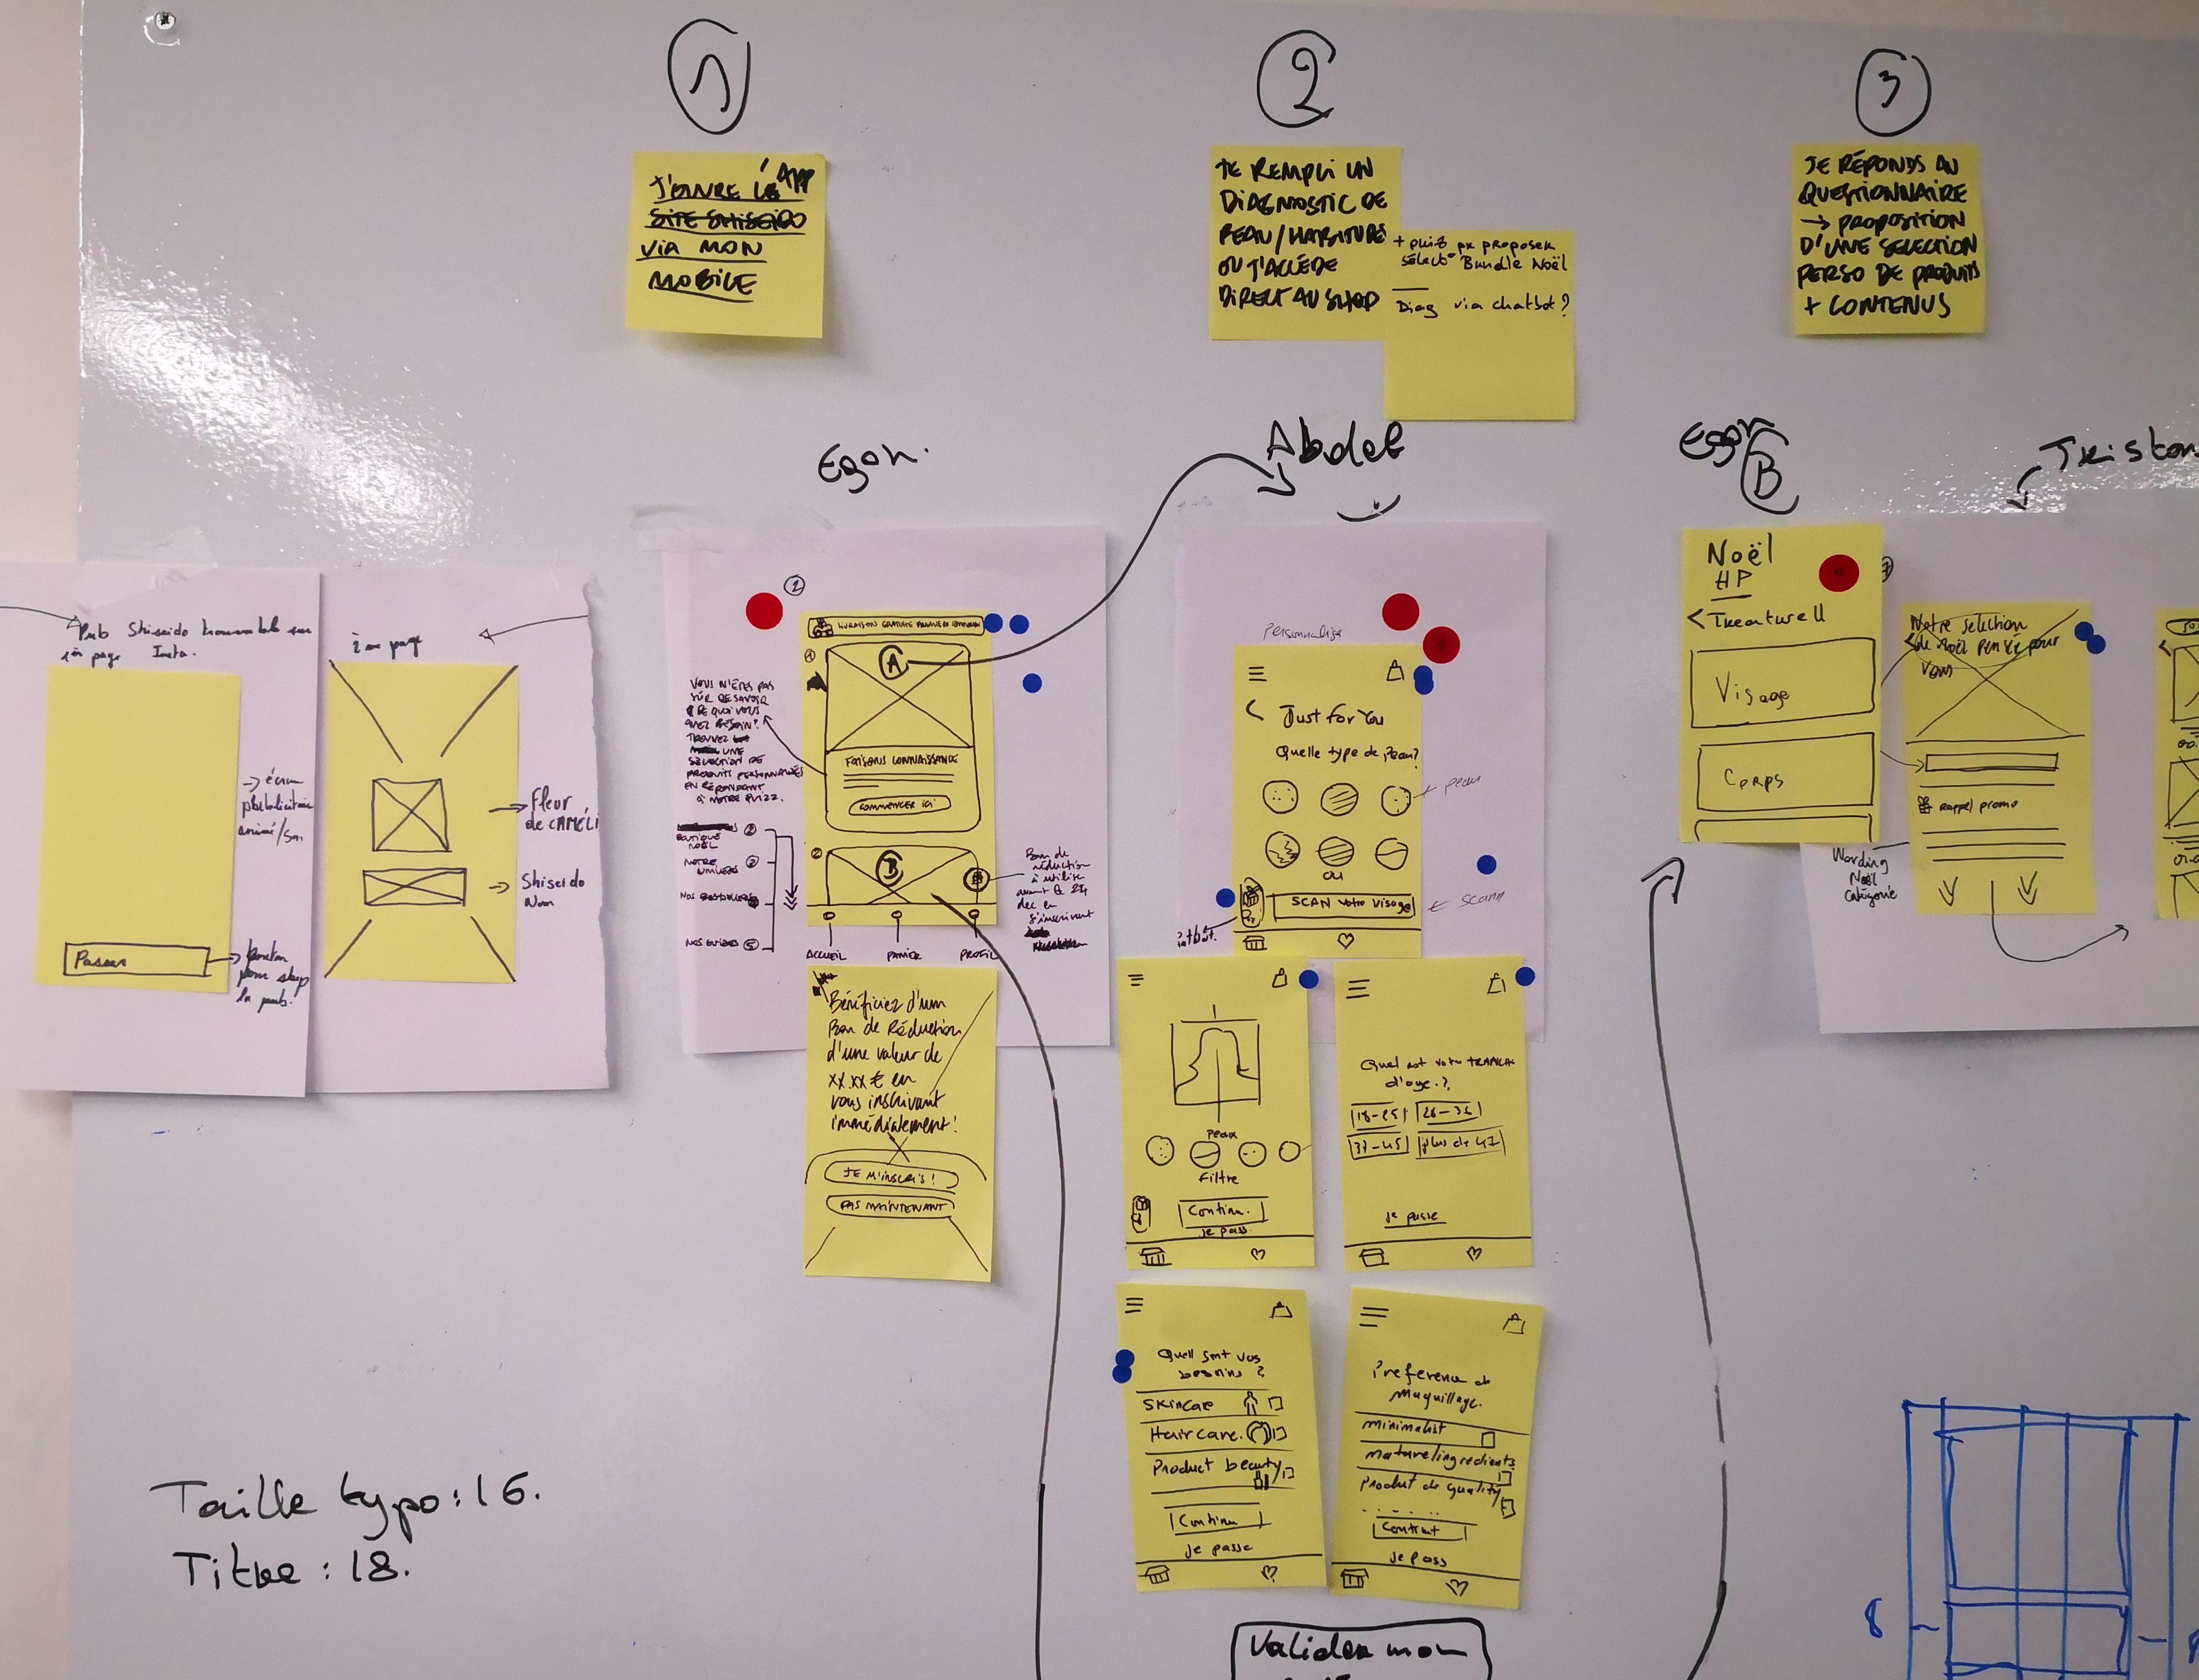 1
J'OUVRE L'APP
SITE SHISEIDO
VIA MON
MOBILE
2
JE REMPLI UN
DIAGNOSTIC DE
PEAU/HABITUDE
OU J'ACCÈDE
DIRECT AU SHOP
+ quiz pr proposer
sélect° Bundle Noël
Diag via chatbot ?
3
JE RÉPONDS AU
QUESTIONNAIRE
→ PROPOSITION
D'UNE SELECTION
PERSO DE PRODUITS
+ CONTENUS
Egon.
Abdel
Egon
B
Tristan
Pub Shiseido
1èr page Insta.
Passer
→ écran
publicitaire
animé/son
→ bouton
pour stop
la pub.
2ème page
→ Fleur
de CAMÉLI
→ Shiseido
Nom
2
LIVRAISON GRATUITE PREMIÈRE COMMANDE
1
A
FAISONS CONNAISSANCE
COMMENCER ICI
2
B
ACCUEIL
PANIER
PROFIL
VOUS N'ÊTES PAS
SÛR DE SAVOIR
DE QUOI VOUS
AVEZ BESOIN?
TROUVEZ
UNE
SÉLECTION DE
PRODUITS PERSONNALISÉS
EN RÉPONDANT
À NOTRE QUIZZ.
BOUTIQUE
NOËL
2
NOTRE
UNIVERS
3
NOS BESTSELLERS
NOS GUIDES 5
Bon de
réduction
à utiliser
avant le 24
dec en
s'inscrivant
Bénéficiez d'un
Bon de Réduction
d'une valeur de
xx.xx € en
vous inscrivant
immédiatement!
JE M'INSCRIS !
PAS MAINTENANT
Personnaliser
Just for You
Quelle type de peau?
+ peau
ou
SCAN votre visage
← scann
Peau
Filtre
Continu.
je pass
Quel est votre TRANCHE
d'age.?
18-25
26-36
37-45
plus de 47
je passe
Quell sont vos
besoins ?
Skincare
Hair care.
Product beauty
Continu
je passe
Preference de
maquillage.
minimalist
naturel ingredients
Product de quality
Continu
je pass
Noël
HP
Visage
Corps
Notre sélection
de Noël pensée pour
vous
Rappel promo
Wording
Noël
Catégorie
Taille typo : 16.
Titre : 18.
Valider mon
8